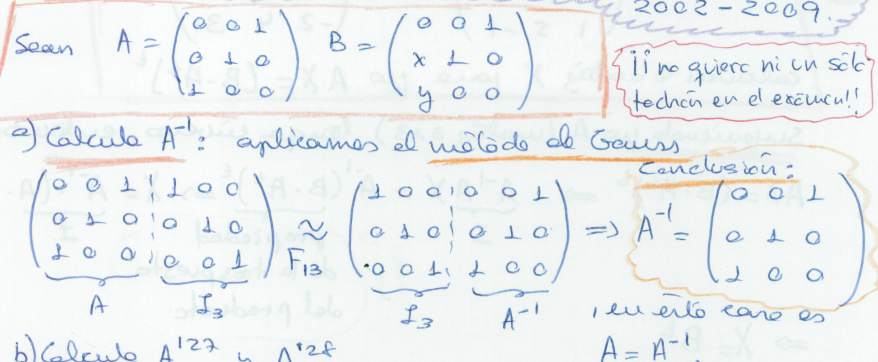 2002-2009.
Sean A = (0 0 1 / 0 1 0 / 1 0 0) B = (0 0 1 / x 1 0 / y 0 0)
¡¡no quiero ni un sólo
tachón en el exámen!!
a) Calcula A⁻¹: aplicamos el método de Gauss
Conclusión:
(0 0 1 ¦ 1 0 0 / 0 1 0 ¦ 0 1 0 / 1 0 0 ¦ 0 0 1) ≈ F₁₃ (1 0 0 ¦ 0 0 1 / 0 1 0 ¦ 0 1 0 / 0 0 1 ¦ 1 0 0) => A⁻¹ = (0 0 1 / 0 1 0 / 1 0 0)
A I₃ I₃ A⁻¹ , en este caso es
A = A⁻¹
b) Calcula A¹²⁷ y A¹²⁸